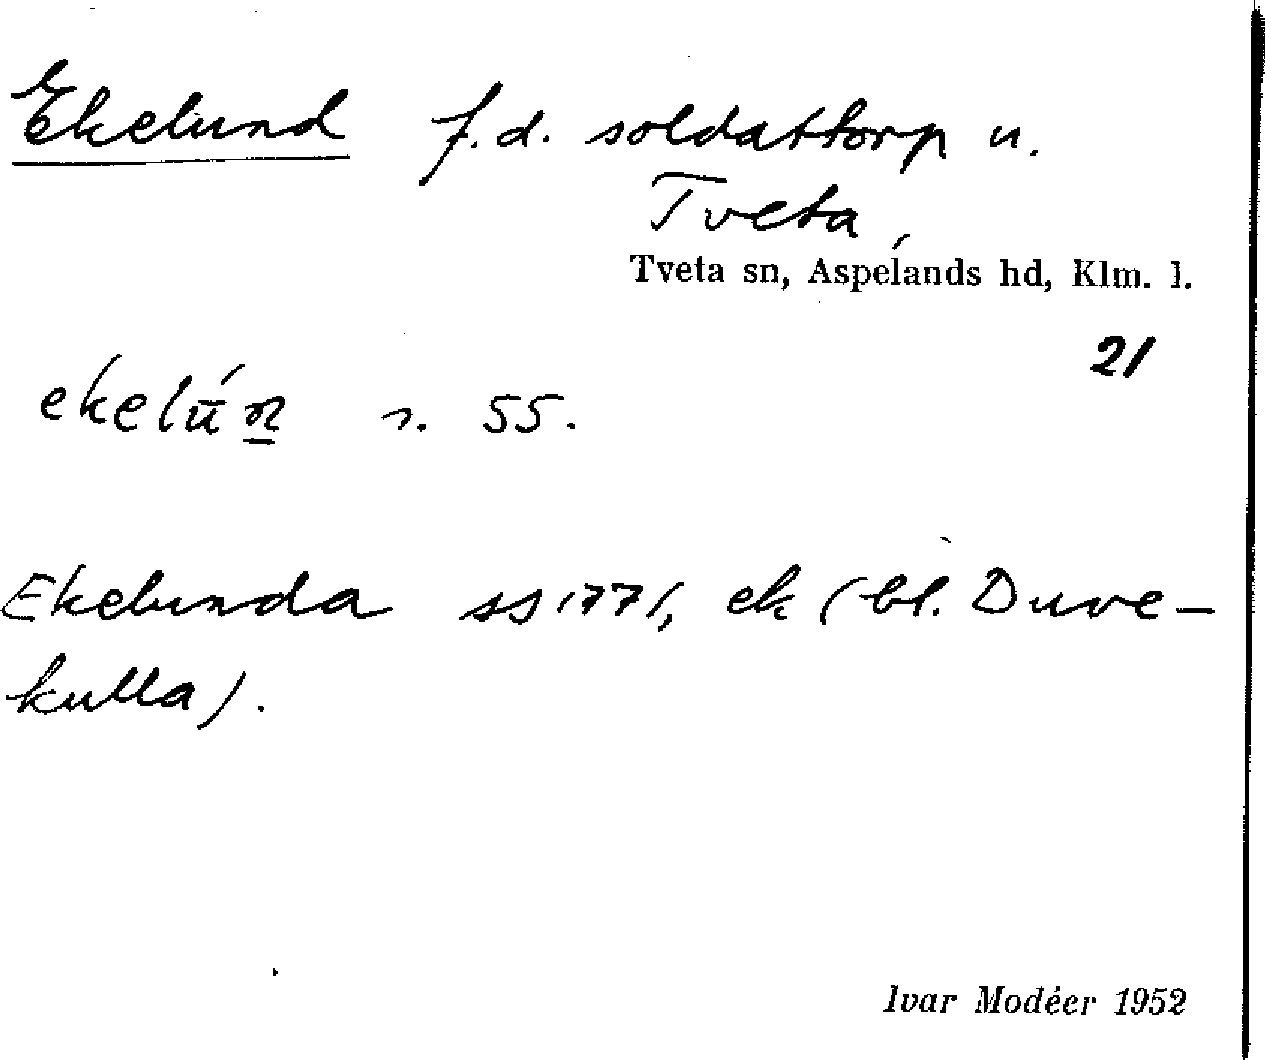 Ekelund f.d. soldattorp u.
Tveta,
Tveta sn, Aspelands hd, Klm. l.
21
ekelu̅́n̲ s. 55.
Ekelunda ss 1771, ek (bl. Duve-
kulla).
Ivar Modéer 1952